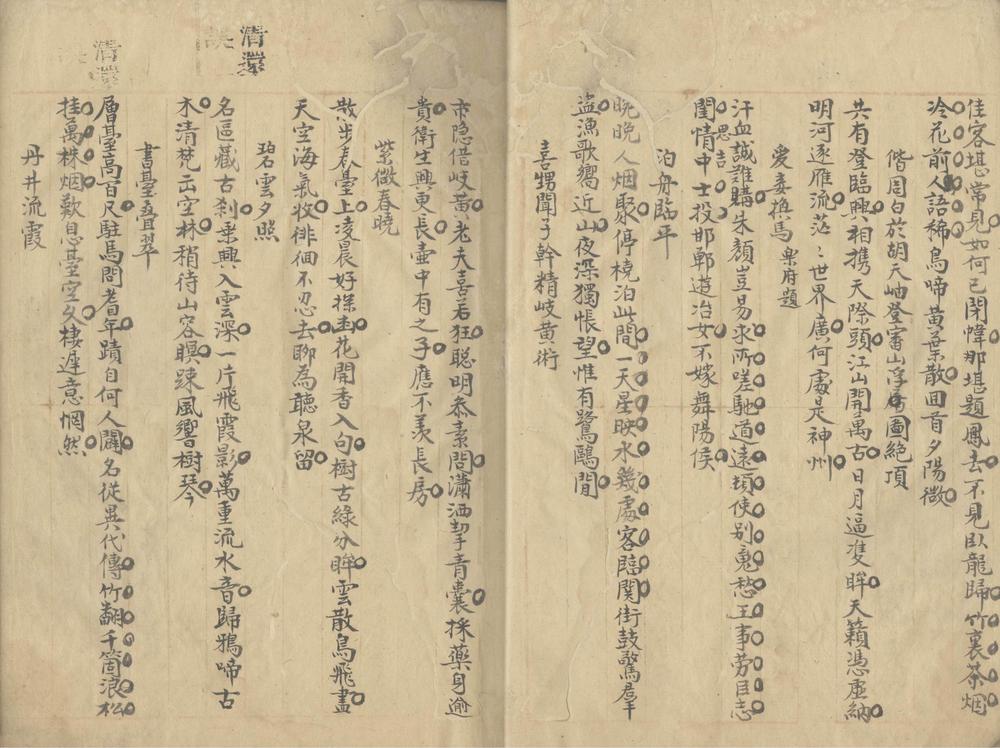 佳客堪常見如何已閉幃那堪題鳳去不見臥龍歸竹裏茶烟
冷花前人語稀鳥啼黃葉散回首夕陽微
偕周白於胡天岫登審山浮屠圖絕頂
共有登臨興相携天際頭江山開萬古日月逼雙眸天籟憑虛納
明河逐雁流茫〻世界廣何處是神州
愛妾換馬 樂府題
汗血誠難購朱顏豈易求所嗟馳道遠頃使別魂愁王事勞臣志
閨情中士投邯鄲遊冶女不嫁舞陽侯
思吉
泊舟臨平
晚晚人烟聚停橈泊此間一天星映水幾處客臨関街鼓驚羣
盜漁歌嚮近山夜深獨悵望惟有鷺鷗閒
喜甥聞子幹精岐黃術
市隱借岐黃老夫喜若狂聰明恭素問瀟洒挈青囊採藥身逾
貴衛生興更長壺中有之子應不羡長房
紫微春曉
散步春臺上凌晨好探幽花開香入句樹古綠分眸雲散鳥飛盡
天空海氣收徘徊不忍去聊為聽泉留
碧雲夕照
名區藏古刹乗興入雲深一片飛霞影萬重流水音歸鴉啼古
木清梵出空林稍待山容瞑踈風響樹琴
書臺叠翠
層臺高百尺駐馬問耆年蹟自何人闢名從異代傳竹翻千箇浪松
挂萬株烟歎息臺空久棲遲意惘然
丹井流霞